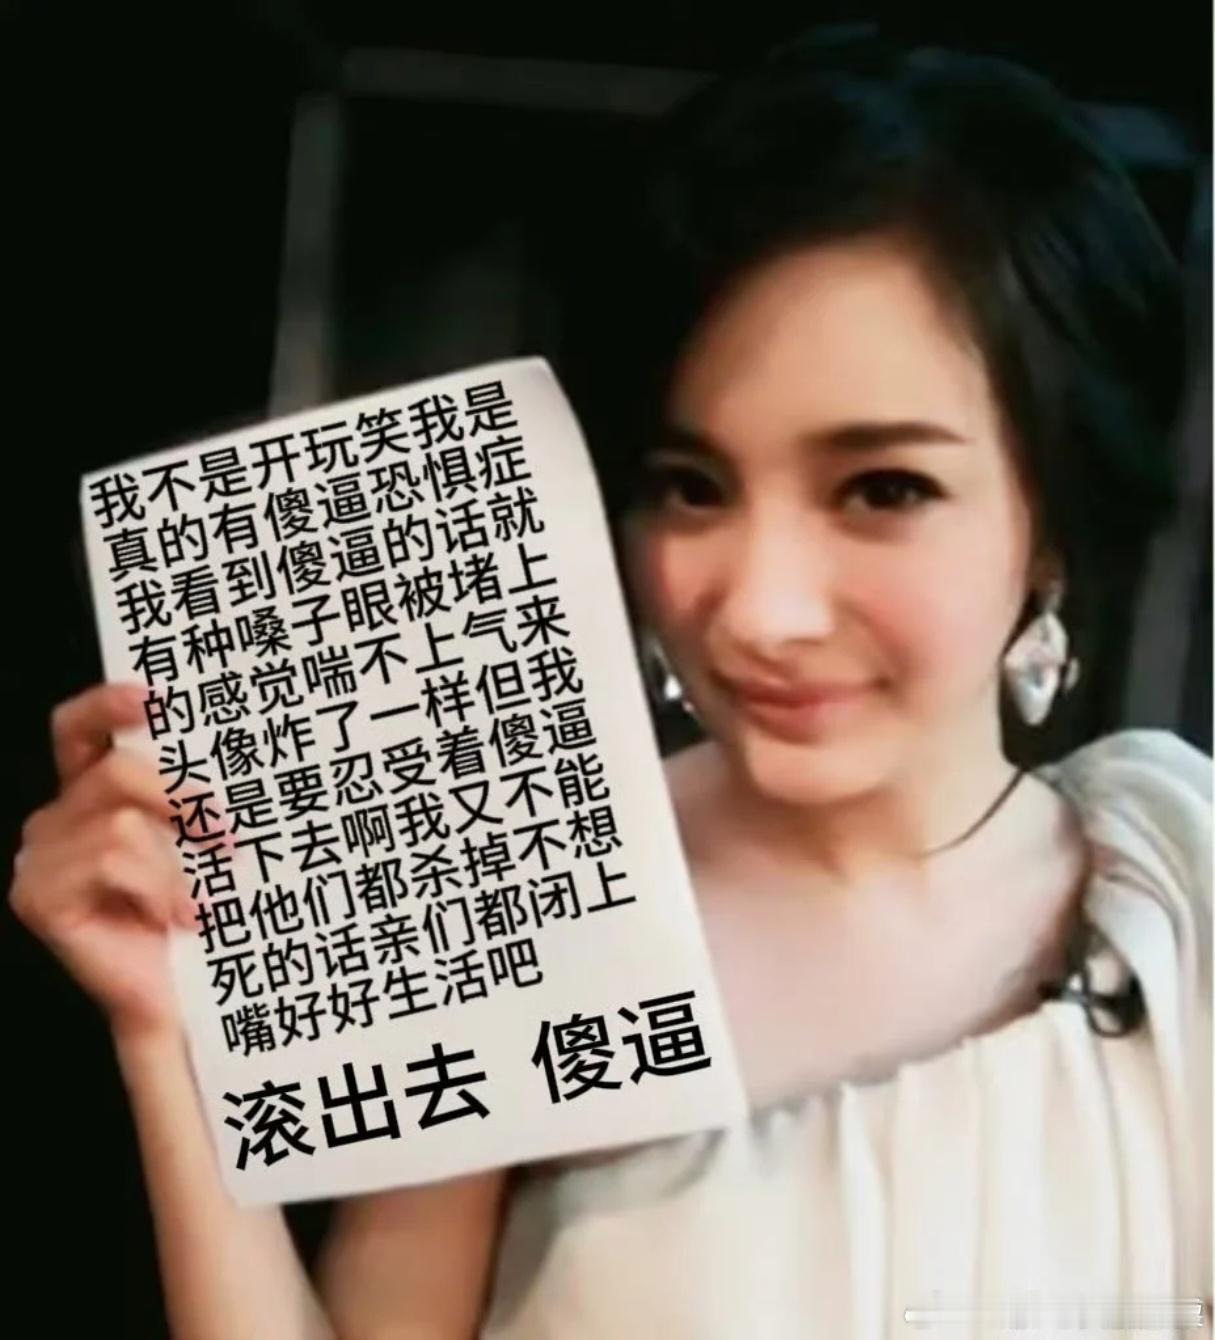 我不是开玩笑我是
真的有傻逼恐惧症
我看到傻逼的话就
有种嗓子眼被堵上
的感觉喘不上气来
头像炸了一样但我
还是要忍受着傻逼
活下去啊我又不能
把他们都杀掉不想
死的话亲们都闭上
嘴好好生活吧
滚出去 傻逼